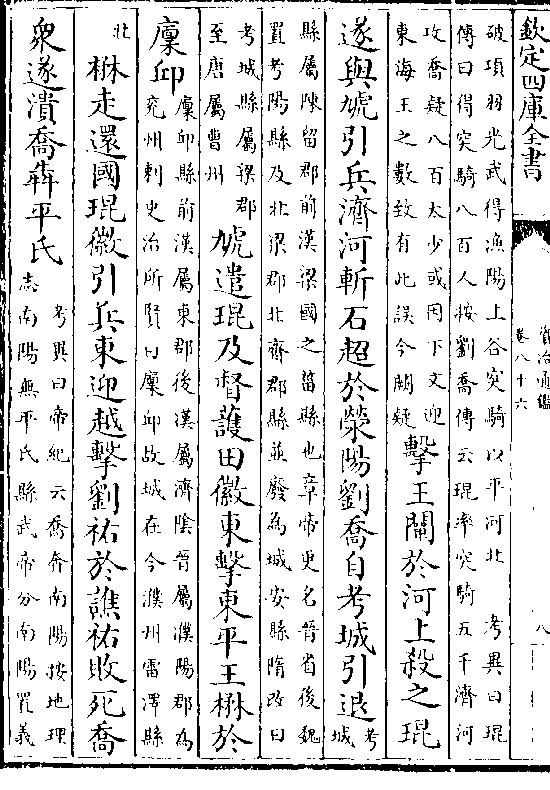 欽定四庫全書
資治通鑑
卷八十六
八
破項羽光武得漁陽上谷突騎以平河北 考異曰琨
傳曰得突騎八百人按劉喬傳云琨率突騎五千濟河
攻喬疑八百太少或因下文迎
東海王之數致有此誤今闕疑
擊王闡於河上殺之琨
遂與虓引兵濟河斬石超於滎陽劉喬自考城引退
考城
縣屬陳留郡前漢梁國之甾縣也章帝更名晉省後魏
置考陽縣及北梁郡北齊郡縣並廢為城安縣隋改曰
考城縣屬梁郡
至唐屬曹州
虓遣琨及督護田徽東擊東平王楙於
廩丘
廩丘縣前漢屬東郡後漢屬濟陰晉屬濮陽郡為
兖州刺史治所賢曰廩丘故城在今濮州雷澤縣
北
楙走還國琨徽引兵東迎越擊劉祐於譙祐敗死喬
衆遂潰喬犇平氏
考異曰帝紀云喬奔南陽按地理
志南陽無平氏縣武帝分南陽置義